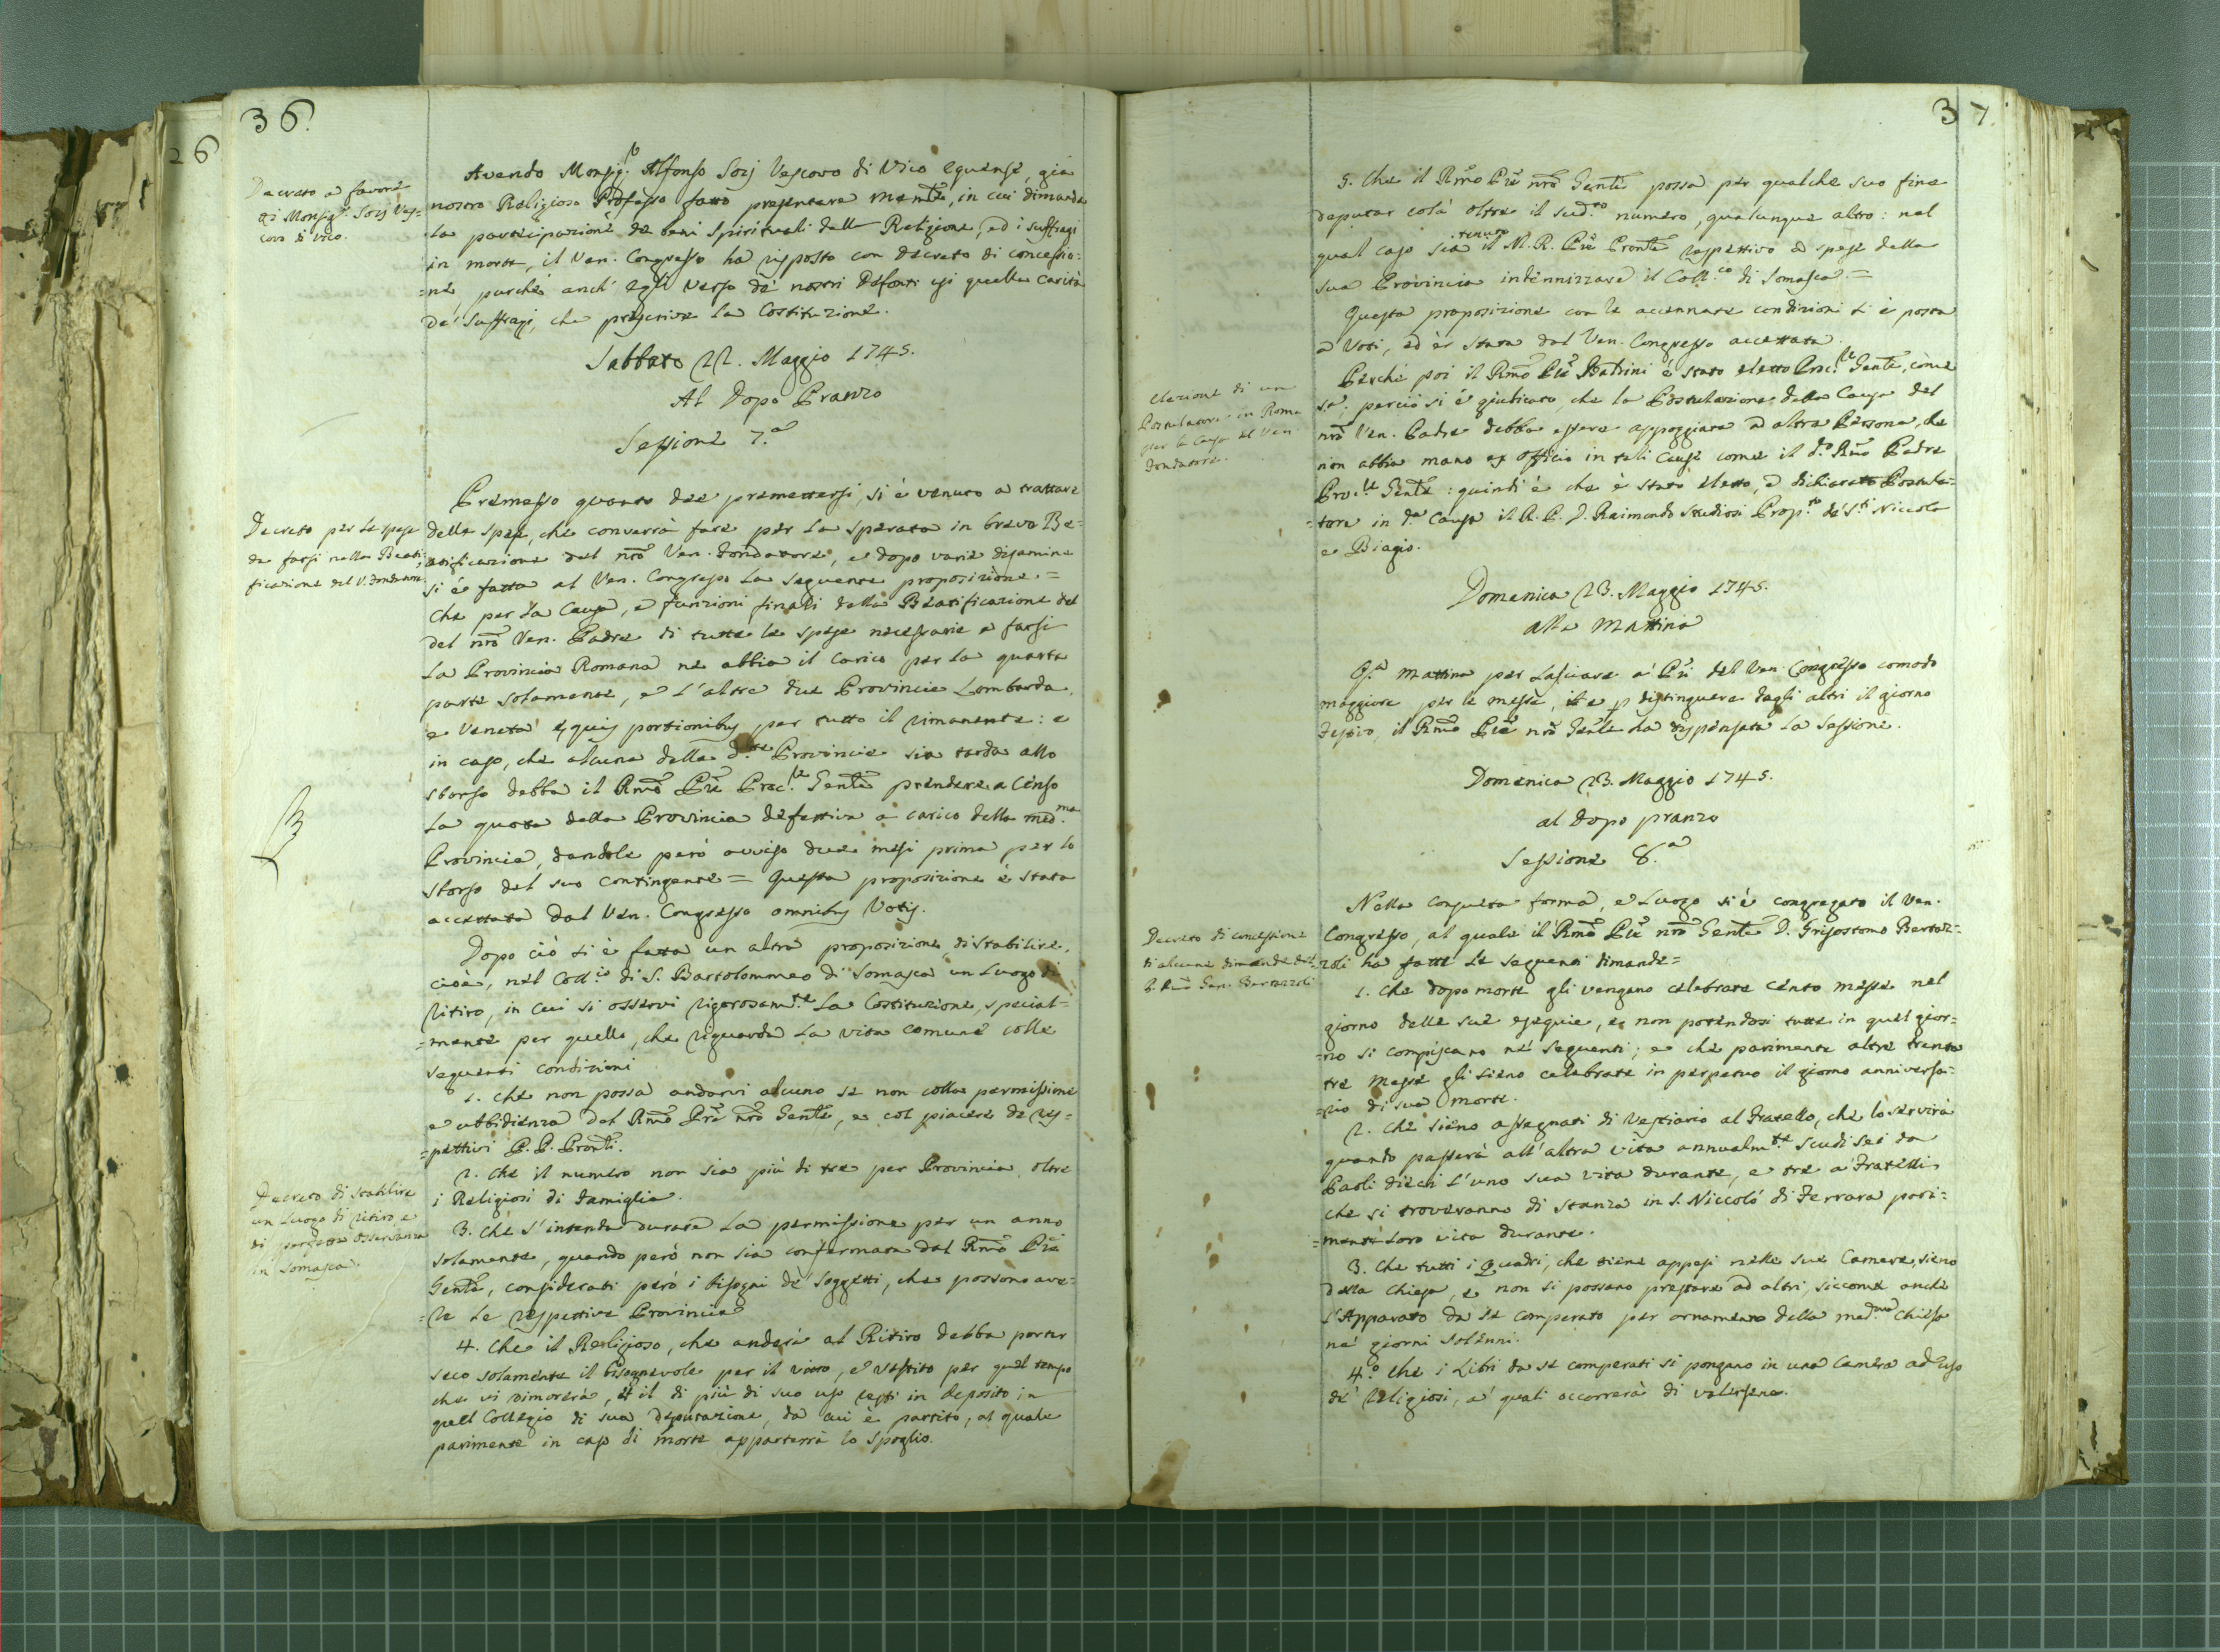 36.
26
Decreto a favore
di Monsig.r Sozj Ves-
covo di Vico.
Avendo Monsig.r Alfonso Sozj Vescovo di Vico Equense, già
nostro Religioso Professo fatto presentare mem̃te, in cui dimanda
la partecipazione de beni Spirituali della Religione, ed i suffragi
in morte, il Ven. Congresso ha risposto con decreto di concessio-
=ne, purché anch' egli verso de' nostri Defonti usi quella carità
de' Suffragj, che prescrive la Costituzione.
Sabbato 22. Maggio 1745.
Al Dopo Pranzo
Sessione 7.a
Decreto per le spese
da farsi nella Beati-
ficazione del V. Fondatore.
Premesso quanto dee premettersi, si è venuto a trattare
delle spese, che converrà fare per la sperata in breve Be-
atificazione del nr̃o Ven. Fondatore, e dopo varie disamine
si é fatta al Ven. Congresso la seguente proposizione. =
Che per la Causa, e funzioni finali della Beatificazione del
del nr̃o Ven. Padre di tutte le spese necessarie a farsi
la Provincia Romana ne abbia il carico per la quarta
parte solamente, e l'altre due Provincie Lombarda,
e Veneta equis portionibus per tutto il rimanente: e
in caso, che alcuna delle d.te Provincie sia tarda allo
sborso debba il Rm̃o Pr̃e Proc.le Gen̄le prendere a Censo
la quota della Provincia defettiva a carico della med.ma
Provincia, dandole però avviso due mesi prima per lo
sborso del suo contingente = Questa proposizione è stata
accettata dal Ven. Congresso omnibus Votis.
Dopo ciò si è fatta un altra proposizione di stabilire,
cioè, nel Coll.io di S. Bartolommeo di Somasca un Luogo di
Ritiro, in cui si osservi rigorosam.te la Costituzione, special-
=mente per quello, che riguarda la vita comune colle
seguenti condizioni
1. Che non possa andarvi alcuno se non colla permissione
e ubbidienza del Rm̃o Pr̃e nr̃o Gen̄le, e col piacere de ris-
=pettivi P. P. Pron̄li.
Decreto di stabilire
un Luogo di ritiro, e
di perfetta osservanza
in Somasca.
2. Che il numero non sia più di tre per Provincia oltre
i Religiosi di Famiglia.
3. Che s'intenda durare la permissione per un anno
solamente, quando però non sia confermata dal Rm̃o Pr̃e
Gen̄le, considerati però i bisogni de' Soggetti, che possono ave-
=re le rispettive Provincie
4. Che il Religioso, che anderà al Ritiro debba portar
seco solamente il bisognevole per il vitto, e vestito per quel tempo
che vi dimorerà, et il di più di suo uso resti in deposito in
quel Collegio di sua deputazione, da cui è partito, al quale
parimente in caso di morte apparterrà lo spoglio.
37.
5. Che il Rm̃o Pr̃e nr̃o Gen̄le possa per qualche suo fine
deputar colà oltre il sud.to numero, qualunque altro: nel
qual caso sia tenuto il M. R. Pr̃e Pron̄le rispettivo a spese della
sua Provincia indennizzare il Coll.io di Somasca. =
Questa proposizione con le accennate condizioni si è posta
a Voti, ed è stata dal Ven. Congresso accettata.
Elezione di un
Postulatore in Roma
per la Causa del Ven.
Fondatore.
Perché poi il Rm̃o Pr̃e è stato eletto Proc.le Gen̄le, come
s.a, perciò si é giudicato, che la Postulazione della Causa del
nr̃o Ven. Padre debba essere appoggiata ad altra Persona, che
non abbia mano ex officio in tali Cause come il d.o Rm̃o Padre
Proc.le Gen̄le: quindi è che è stato eletto, e dichiarato Postula-
=tore in d.a Causa il R. P. D. Raimondo Studiosi Prop.to de' S.ti Niccola
e Biagio.
Domenica 23. Maggio 1745.
alla Mattina
Q.a mattina per lasciare a' Pr̃i del Ven. Congresso comodo
maggiore per le messe, e p distinguere dagli altri il giorno
Festivo, il Rm̃o Pr̃e nr̃o Gen̄le ha dispensata la Sessione.
Domenica 23. Maggio 1745.
al Dopo pranzo
Sessione 8.a
Decreto di concessione
di alcune dimande del
P. Rm̃o Gen. Bertazzoli
Nella consueta forma, e Luogo si è congregato il Ven.
Congresso, al quale il Rm̃o Pr̃e nr̃o Gen̄le D. Grisostomo Bertaz-
=zoli ha fatte le seguenti dimande =
1. Che dopo morte gli vengano celebrate cento messe nel
giorno delle sue esequie, e non potendosi tutte in quel gior-
=no si compiscano ne' seguenti; e che parimente altre trenta
tre messe gli sieno celebrate in perpetuo il giorno anniversa-
=rio di sua morte.
2. Che sieno assegnati di Vestiario al Fratello, che lo servirà
quando passerà all'altra vita annualm.te scudi sei da
Paoli dieci l'uno sua vita durante, e tre a' Fratelli
che si troveranno di stanza in S. Niccolò di Ferrara pari-
=mente loro vita durante.
3. Che tutti i Quadri, che tiene appesi nelle sue Camere, sieno
della Chiesa, e non si possano prestare ad altri, siccome anche
l'Apparato da se comperato per ornamento della med.ma Chiesa
ne' giorni solenni.
4.o Che i Libri da se comperati si pongano in una Camera ad uso
de' Religiosi, a' quali occorrerà di valersene.